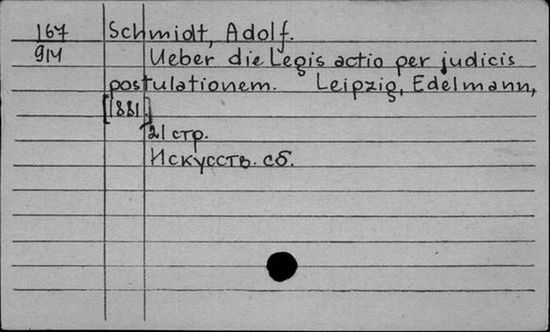 167 Schmidt, Adolf.
914 Ueber die Legis actio per judicis
postulationem. Leipzig, Edelmann,
[1881.]
21 стр.
Искусств. сб.